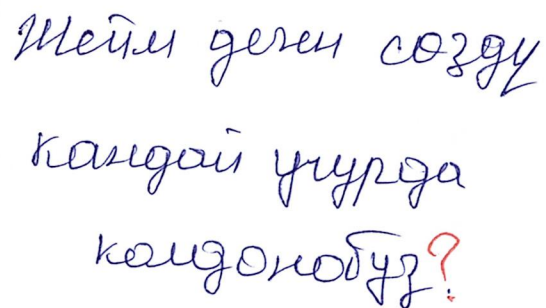 Жейм деген созду
кандай учурда
колдонобуз?